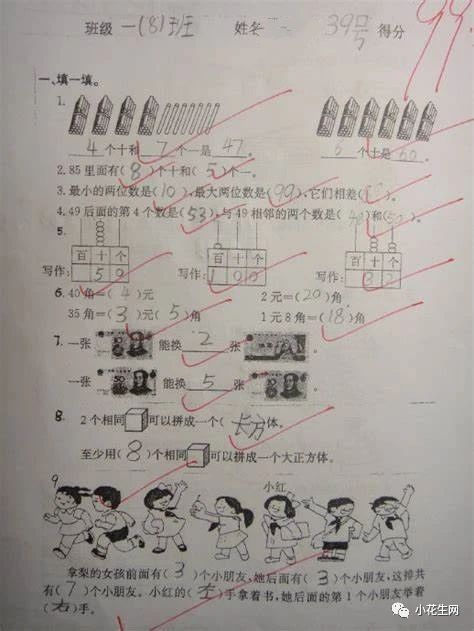 班级 一(8)班 姓名 39号 得分 99
一、填一填。
1.
4 个十和 7 个一是 47。 6 个十是 60。
2. 85里面有(8)个十和(5)个一。
3. 最小的两位数是(10),最大两位数是(99),它们相差( )。
4. 49后面的第4个数是(53),与49相邻的两个数是( )和(50)。
5.
百 十 个 百 十 个 百 十 个
写作: 5 9 写作: 1 0 0 写作: 3 2
6. 40角=(4)元 2元=(20)角
35角=(3)元(5)角 1元8角=(18)角
7. 一张 能换 2 张 。
一张 能换 5 张 。
8. 2个相同 可以拼成一个(长方)体。
至少用(8)个相同 可以拼成一个大正方体。
9
小红
拿梨的女孩前面有(3)个小朋友,她后面有(3)个小朋友,这排共
有(7)个小朋友。小红的(左)手拿着书,她后面的第1个小朋友举着
(右)手。
小花生网